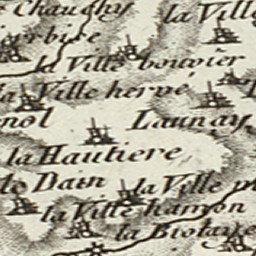 Chaughy
la Ville
la Ville bouvier
la Ville hervé
Launay
la Hautiere
le Dain
la Ville
la Ville hamon
la Biotaye